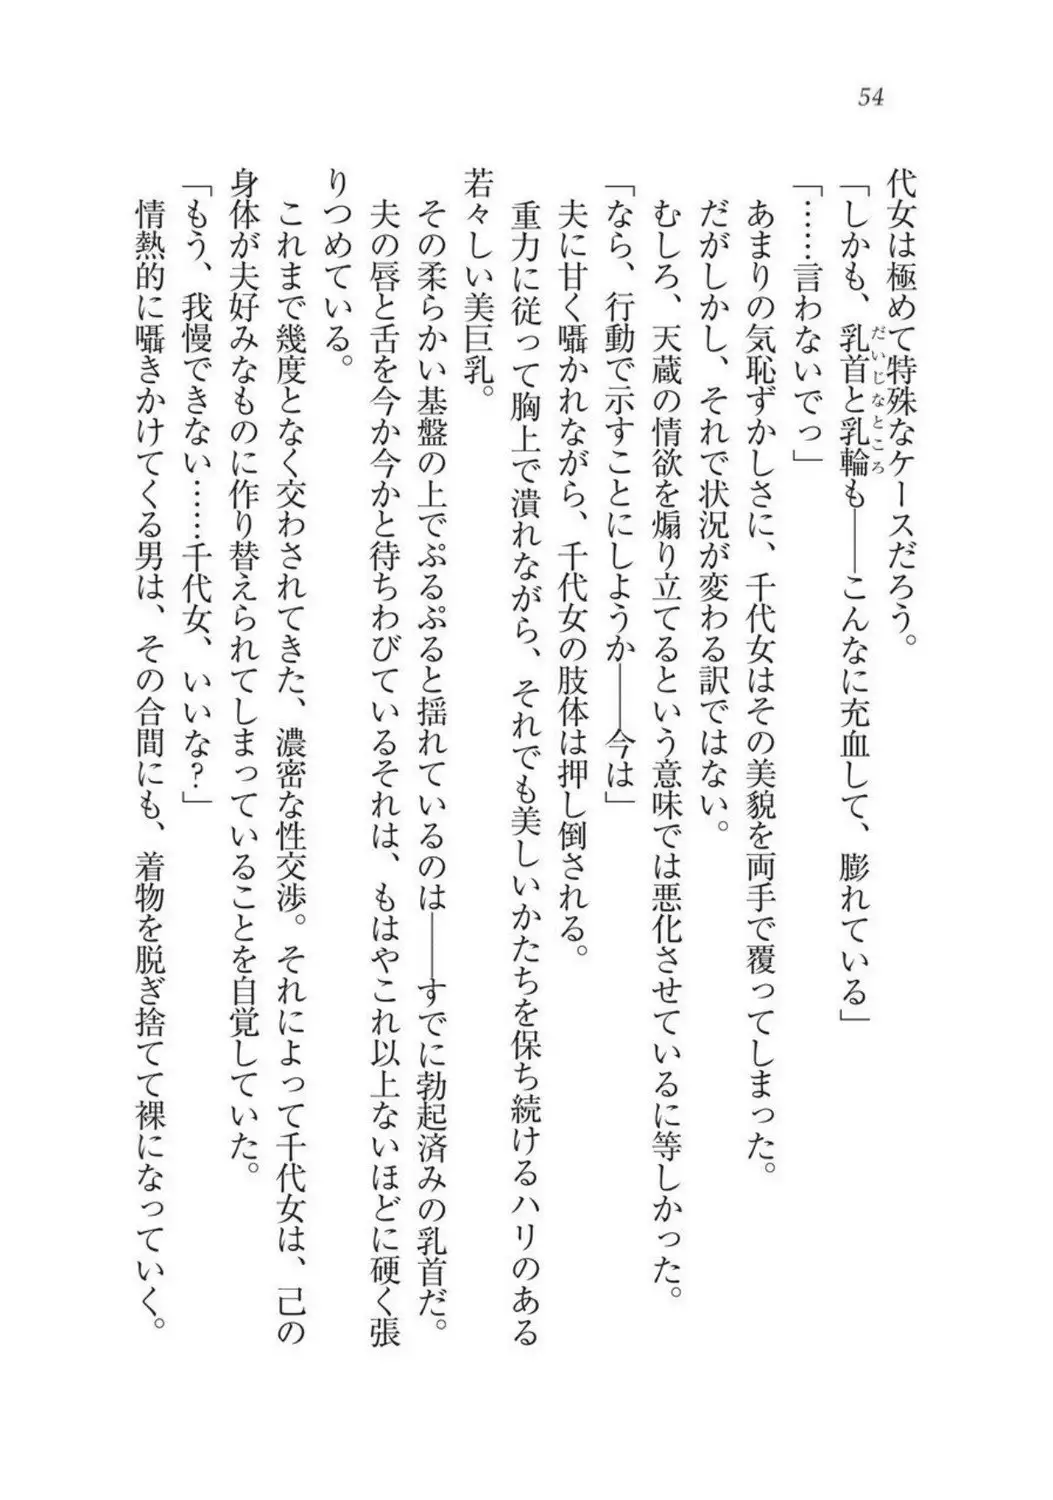 54
代女は極めて特殊なケースだろう。
「しかも、乳首と乳輪も――こんなに充血して、膨れている」
だいじなところ
「……言わないでっ」
あまりの気恥ずかしさに、千代女はその美貌を両手で覆ってしまった。
だがしかし、それで状況が変わる訳ではない。
むしろ、天蔵の情欲を煽り立てるという意味では悪化させているに等しかった。
「なら、行動で示すことにしようか――今は」
夫に甘く囁かれながら、千代女の肢体は押し倒される。
重力に従って胸上で潰れながら、それでも美しいかたちを保ち続けるハリのある
若々しい美巨乳。
その柔らかい基盤の上でぷるぷると揺れているのは――すでに勃起済みの乳首だ。
夫の唇と舌を今か今かと待ちわびているそれは、もはやこれ以上ないほどに硬く張
りつめている。
これまで幾度となく交わされてきた、濃密な性交渉。それによって千代女は、己の
身体が夫好みなものに作り替えられてしまっていることを自覚していた。
「もう、我慢できない……千代女、いいな?」
情熱的に囁きかけてくる男は、その合間にも、着物を脱ぎ捨てて裸になっていく。